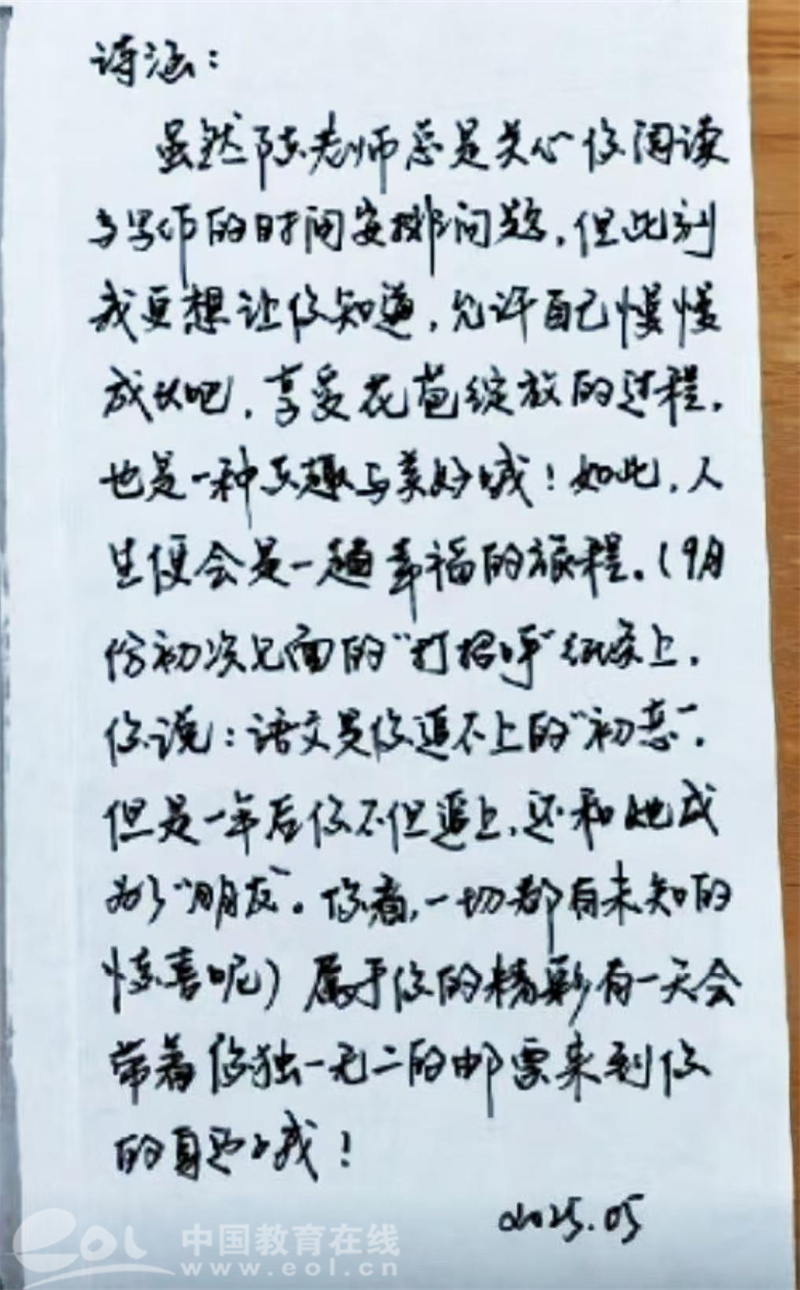 诗涵：
虽然陈老师总是关心你阅读
与写作的时间安排问题，但此刻
我更想让你知道，允许自己慢慢
成长吧，享受花苞绽放的过程，
也是一种乐趣与美好哦！如此，人
生便会是一趟幸福的旅程。（9月
份初次见面的“打招呼”纸条上，
你说：语文是你追不上的“初恋”，
但是一年后你不但追上，还和她成
为了“朋友”。你看，一切都有未知的
惊喜呢）属于你的精彩有一天会
带着你独一无二的邮票来到你
的身边哦！
2025.05
eol 中国教育在线
www.eol.cn